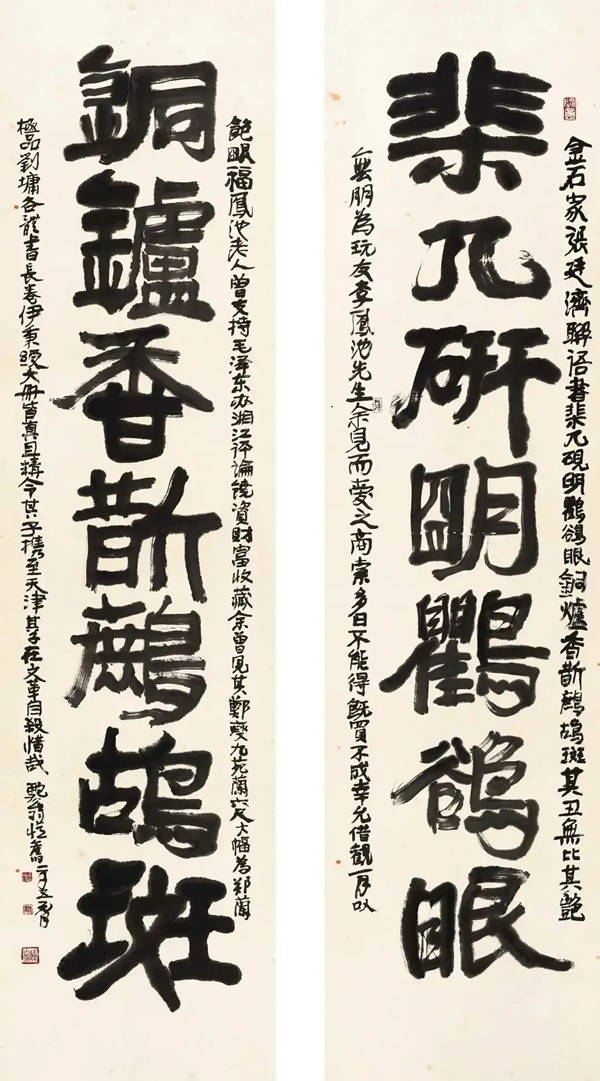 金石家張廷濟聯語書棐几硯明鸜鵒眼銅爐香斷鷓鴣斑其丑無比其艷
棐几研明鸜鵒眼
無朋為玩友李鳳池先生余見而愛之商索多日不能得既買不成幸允借觀一月以
飽眼福鳳池老人曾支持毛泽东办湘江评论饶資財富收藏余曾見其鄭燮九苑蘭六尺大幅為郑蘭
銅鑪香斷鷓鴣斑
極品劉墉各體書長卷伊秉綬大册皆真且精令其子携至天津其子在文革自殺惜哉